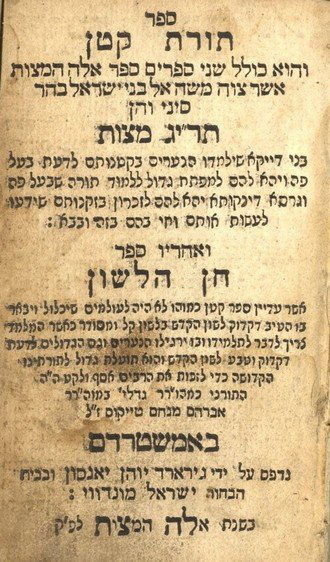 ספר
תורת קטן
והוא כולל שני ספרים ספר אלה המצות
אשר צוה משה אל בני ישראל בהר
סיני והן
תרי״ג מצות
בני דייקא שילמדו הנערים בקטנותם לדעת בעל
פה ויהא להם למפתח גדול ללמוד תורה שבעל פה
וגרסא דינקותא יהא להם לזכרון בזקנותם שידעו
לעשות אותם וחי בהם בזה ובבא :
ואחריו ספר
חן הלשון
אשר עדיין ספר קטן כמוהו לא היה לעולמים שיכלול ויבאר
בו היטיב דקדוק לשון הקדש בלשון קל ומסודר כאשר המלמד
צריך לדבר לתלמידו ובו ירגילו הנערים וגם הגדולים לדעת
דקדוק וטבע לשון הקדש והוא תועלת גדול לתורתינו
הקדושה כדי לזכות את הרבים אסף ולקט ה״ה
התורני כמהו׳רר גדלי׳ במוה׳רר
אברהם מנחם טייקוס ז״ל
באמשטרדם
נדפס על ידי גירארד יוהן יאנסון ובבית
הבחור ישראל מונדווי :
בשנת אלה המצות לפ״ק